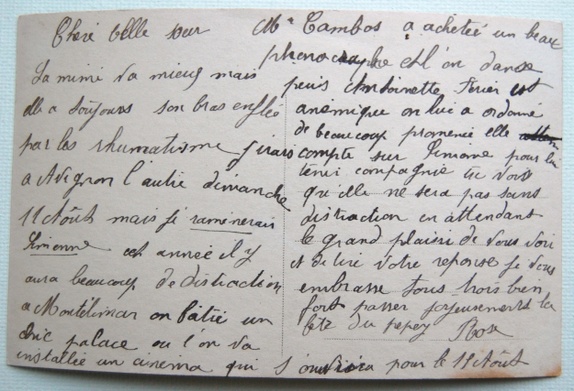 Cheré belle sœur
La mimi va mieux mais
elle a toujours son bras enflée
par les rhumatisme j'irais
a Avignon l'autre dimanche
11 Août mais je ramènerais
Simonne cet année il y
aura beaucoup de distraction
a Montélimar on bâtie un
palace ou l'on va
installé un cinema qui s'ouvrira pour le 11 Août
Mr Cambos a acheteé un beau
phonographe et l'on danse
puis Antoinette Ferier est
anémique on lui a ordonné
de beaucoup promenée elle
compte sur Simone pour lui
tenir compagnie tu vois
qu'elle ne sera pas sans
distraction en attendant
le grand plaisir de vous voir
et de lire votre reponse je vous
embrasse tous trois bien
fort passer joyeusement la
fête du pepey Rose